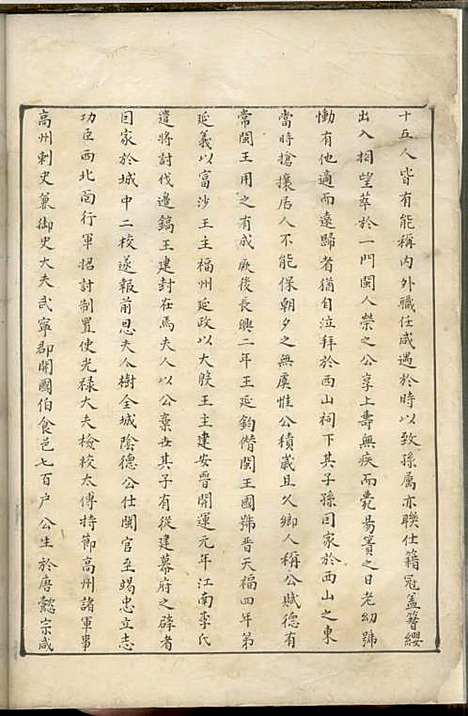 十五人皆有能稱内外職任咸遇於時以致孫属亦聯仕籍冠盖簪纓
出入相望萃於一門閩人榮之公享上壽無疾而薨昜簀之日老幼號
慟有他適而遠歸者猶旬泣拜於西山祠下其子孫回家於西山之東
當時搶攘居人不能保朝夕之無虞惟公積歲且久鄉人稱公賦德有
常閩王用之有成厥後長興二年王延鈞僭閩王國號晉天福四年第
延義以富沙王主福州延政以大殷王主建安晉開運元年江南李氏
遣將討伐邉鎬王建封在焉夫人以公棄世其子有從建幕府之辟者
回家於城中二校遂報前恩夫人樹全城陰德公仕閩官至竭忠立志
功臣西北面行軍招討制置使光禄大夫檢校太傅持節高州諸軍事
高州刺史兼御史大夫武寧郡開國伯食邑七百户公生於唐懿宗咸